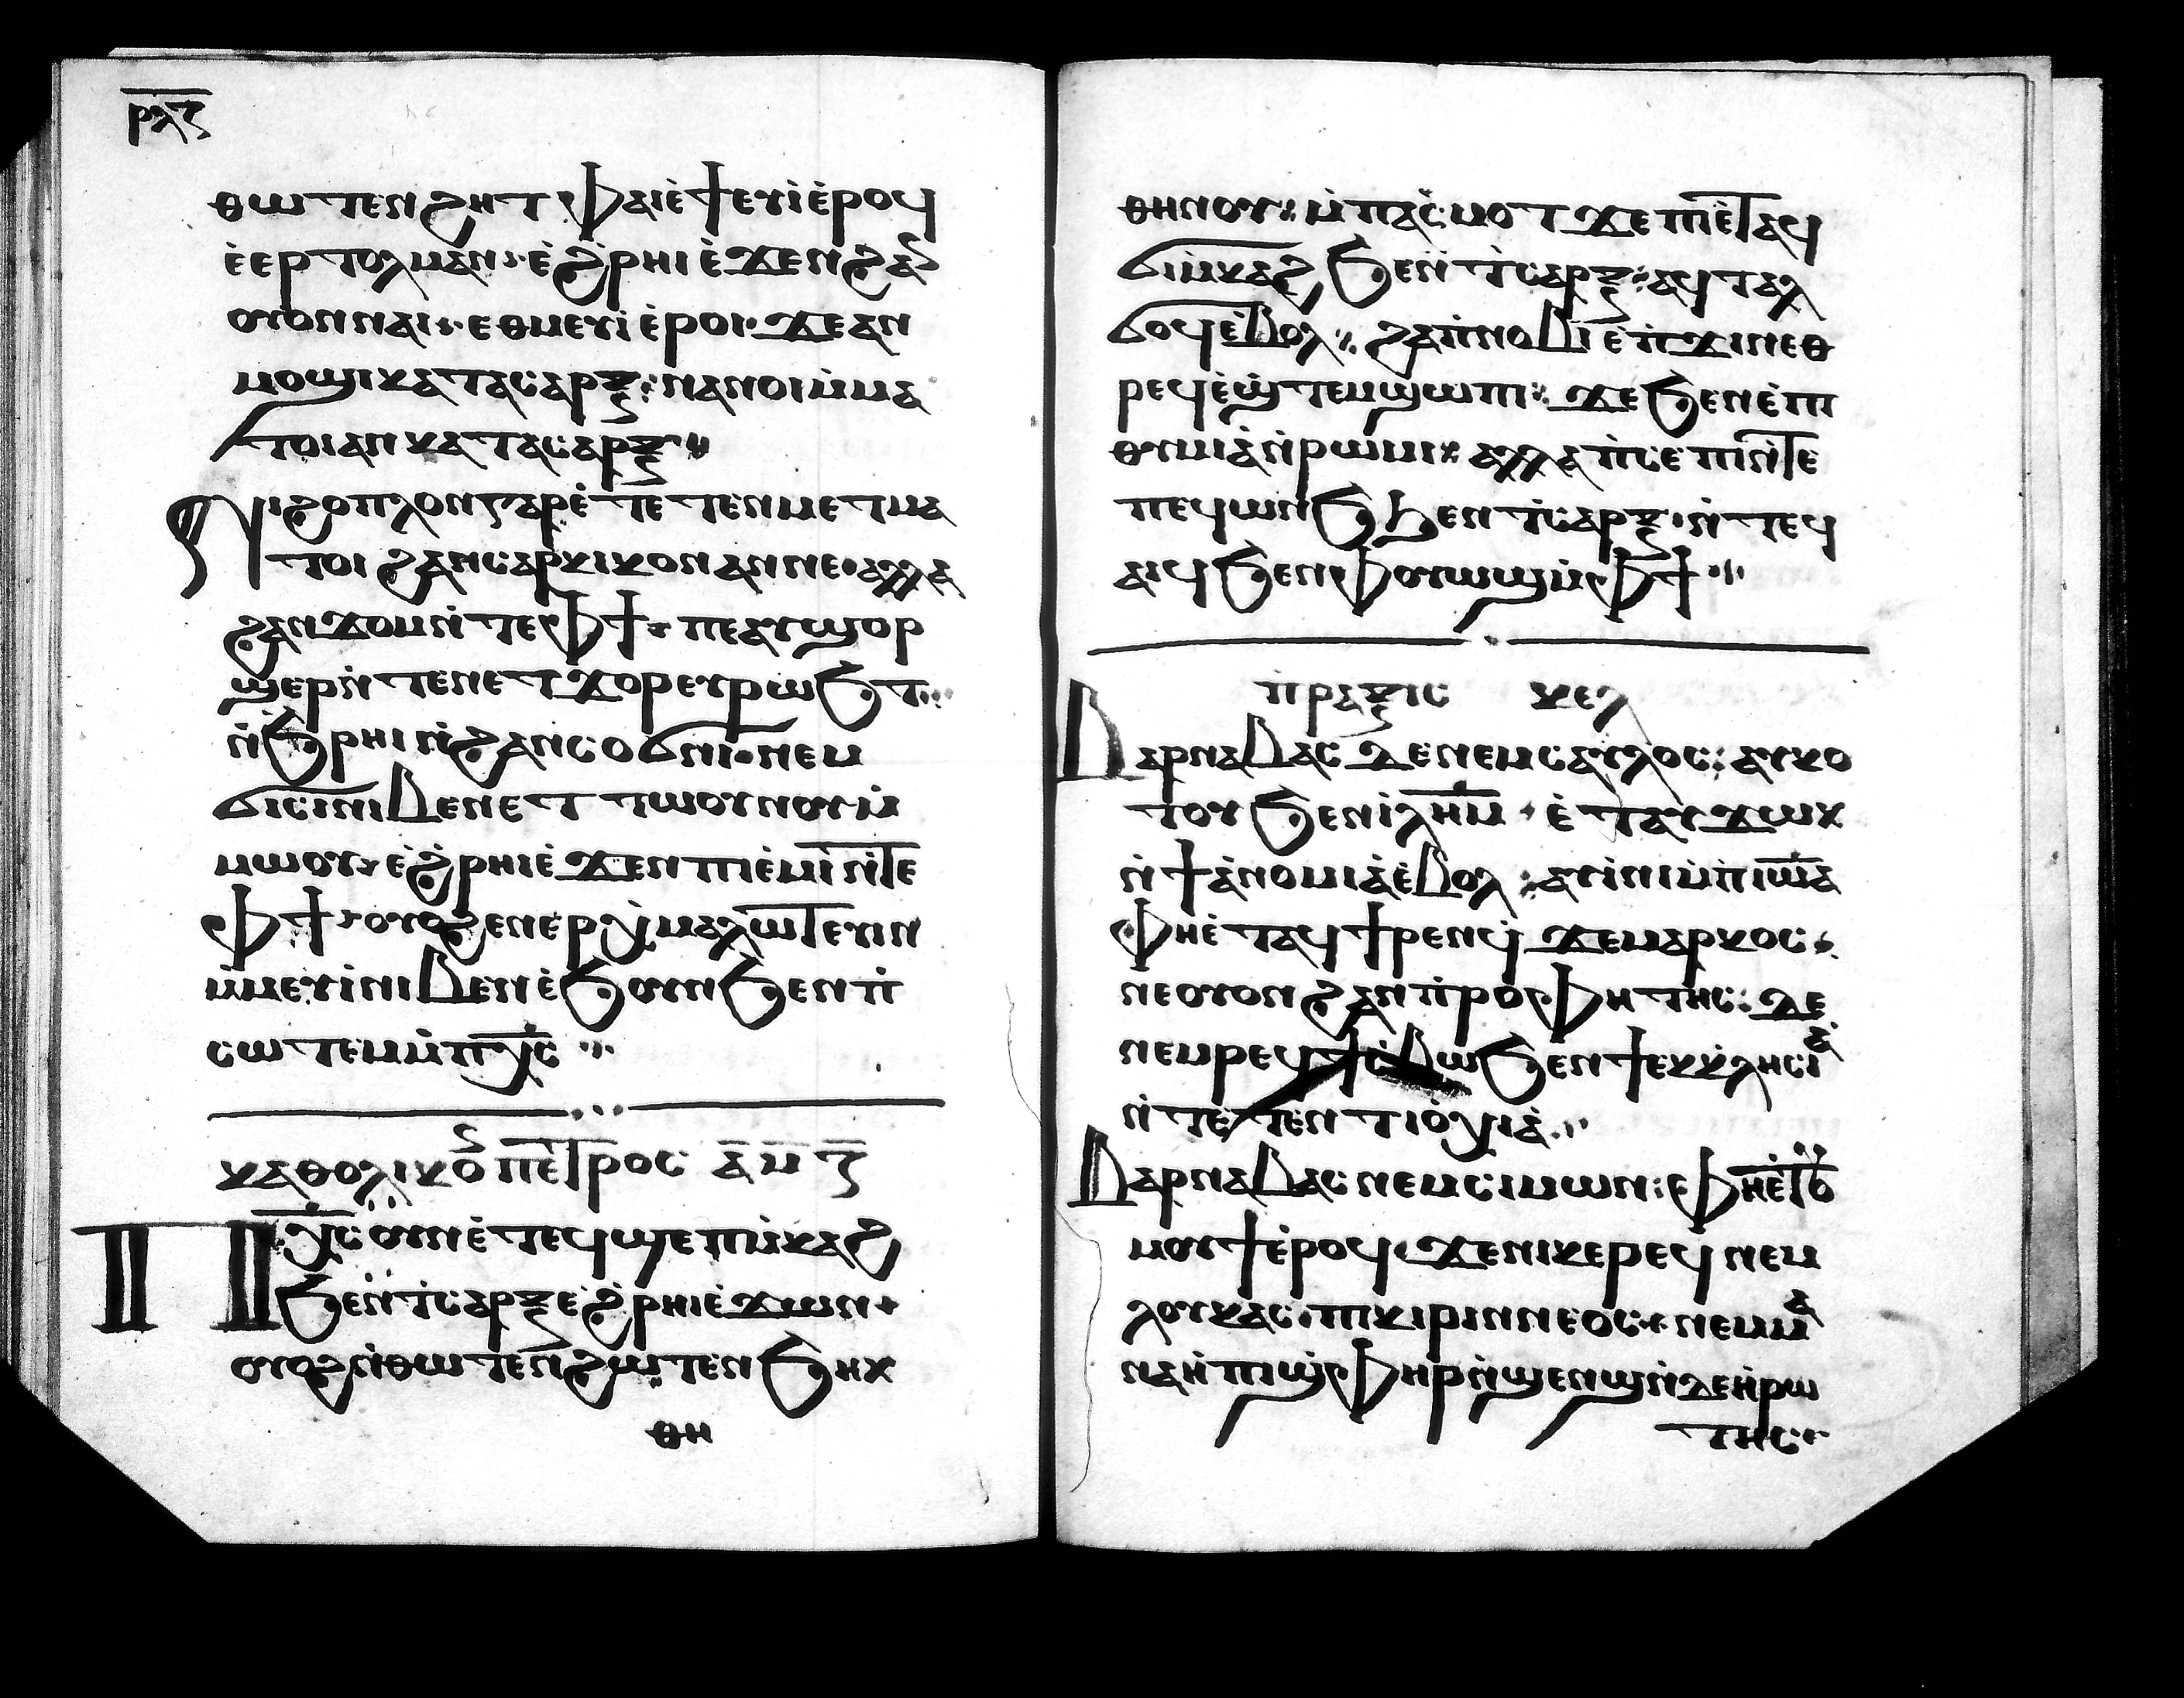 ⲣⲗⲍ
ⲑⲱⲧⲉⲛϩⲏⲧ ⲫⲁⲓⲉ̇ϯⲉⲩⲓ̇ⲉ̇ⲣⲟϥ
ⲉ̇ⲉⲣⲧⲟⲗⲙⲁⲛ: ⲉ̇ϩ̇ⲣⲏⲓ ⲉ̇ϫⲉⲛϩⲁⲛ
ⲟⲩⲟⲛⲛⲁⲓ: ⲉⲑⲙⲉⲩⲓ ⲉ̇ⲣⲟⲓ· ϫⲉⲁⲛ
ⲙⲟϣⲓⲕⲁⲧⲁⲥⲁⲣⲝ: ⲛⲁⲛⲟⲓⲙ̇ⲙⲁ
ⲧⲟⲓⲁⲛⲕⲁⲧⲁⲥⲁⲣⲝ
ⲛⲓϩⲟⲡⲗⲟⲛⲅⲁⲣⲉ̇ⲧⲉⲧⲉⲛⲙⲉⲧⲙⲁ
ⲧⲟⲓ ϩⲁⲛⲥⲁⲣⲕⲓⲕⲟⲛⲁⲛⲛⲉ· ⲁⲗⲗⲁ
ϩⲁⲛϫⲟⲙⲛ̇ⲧⲉⲫϯ: ⲡⲉⲁⲩϣⲟⲣ
ϣⲉⲣⲛ̇ⲧⲉⲛⲉⲧϫⲟⲣⲉⲩⲣⲱϧⲧ
ⲛ̇ϧⲣⲏⲓⲛ̇ϩⲁⲛⲥⲟϭⲛⲓ· ⲛⲉⲙ
ϭⲓⲥⲓⲛⲓⲃⲉⲛⲉⲧⲧⲱⲟⲩⲛⲟⲩⲙ̇
ⲙⲱⲟⲩ: ⲉ̇ϩ̇ⲣⲏⲓⲉ̇ϫⲉⲛⲡⲓⲉ̇ⲙⲓⲛ̇ⲧⲉ
ⲫϯ: ⲟⲩⲟϩⲉⲛⲉⲣⲭ̇ⲙⲁⲗⲱⲧⲉⲩⲓⲛ
ⲙ̇ⲙⲉⲩⲓ̇ⲛⲓⲃⲉⲛⲉ̇ϧⲟⲩⲛϧⲉⲛⲡ̇
ⲥⲱⲧⲉⲙⲙ̇ⲡⲭ̅ⲥ̅
ⲕⲁⲑⲟⲗⲓⲕⲟⲛ ⲡⲉⲧⲣⲟⲥ ⲁ̅ ⲙ̅ ⲍ̅
ⲡⲭ̅ⲥ̅ⲟⲩⲛⲉ̇ⲧⲉϥϣⲉⲡⲙ̇ⲕⲁϩ
ϧⲉⲛⲧ̇ⲥⲁⲣⲝⲉ̇ϩ̇ⲣⲏⲓⲉ̇ϫⲱⲛ
ⲟⲩⲟϩⲛ̇ⲑⲱⲧⲉⲛϩⲱⲧⲉⲛϧⲏⲕ
ⲑⲏ
ⲑⲏⲛⲟⲩ: ⲙ̇ⲡⲁⲓⲥ̇ⲙⲟⲧ ϫⲉⲡⲓⲉ̇ⲧⲁϥ
ϭⲓⲙ̇ⲕⲁϩ ϧⲉⲛⲧ̇ⲥⲁⲣⲝ: ⲁϥⲧⲁⲗ
ϭⲟϥⲉ̇ⲃⲟⲗ: ϩⲁⲡ̇ⲛⲟⲃⲓⲉ̇ⲡ̇ϫⲓⲛⲉⲑ
ⲣⲉϥⲉ̇ϣ̇ⲧⲉⲙϣⲱⲡⲓ: ϫⲉϧⲉⲛⲉ̇ⲡⲓ
ⲑⲩⲙⲓⲁ̇ⲛ̇ⲣⲱⲙⲓ: ⲁⲗⲗⲁⲡ̇ⲥⲉⲡⲓⲛ̇ⲧⲉ
ⲡⲉϥⲱⲛϧ ϧⲉⲛⲧ̇ⲥⲁⲣⲝ· ⲛ̇ⲧⲉϥ
ⲁⲓϥϧⲉⲛⲫⲟⲩⲱϣⲙ̇ⲫϯ
ⲡ̇ⲣⲁⲝⲓⲥ ⲕⲉⲗ
ⲃⲁⲣⲛⲁⲃⲁⲥ ϫⲉⲛⲉⲙⲥⲁⲩⲗⲟⲥ: ⲁⲩⲕⲟ
ⲧⲟⲩϧⲉⲛⲓ̇ⲗⲏ̅ⲙ̅ · ⲉ̇ⲧⲁⲩϫⲱⲕ
ⲛ̇ϯⲇ̇ⲛⲟⲙⲓⲁ̇ⲉ̇ⲃⲟⲗ: ⲁⲩⲓ̇ⲛⲓⲙ̇ⲡⲓⲱ̅ⲁ̅
ⲫⲏⲉ̇ⲧⲁϥϯⲣⲉⲛϥ̇ ϫⲉⲙⲁⲣⲕⲟⲥ
ⲛⲉⲟⲩⲟⲛϩⲁⲛⲡ̇ⲣⲟⲫⲏⲧⲏⲥ: ⲇⲉ
ⲛⲉⲙⲣⲉϥϯⲥ̇ⲃⲱϧⲉⲛϯⲉⲕⲕ̇ⲗⲏⲥⲓⲁ̇
ⲛ̇ⲧⲉⲧⲉⲛⲧⲓⲟ̇ⲭⲓⲁ̇
ⲃⲁⲣⲛⲁⲃⲁⲥⲛⲉⲙⲥⲓⲙⲱⲛ: ⲫⲏⲉ̇ⲧⲟⲩ
ⲙⲟⲩϯⲉ̇ⲣⲟϥϫⲉⲛⲓⲕⲉⲣⲉϥⲛⲉⲙ
ⲗⲟⲩⲕⲁⲥ· ⲡⲓⲕⲓⲣⲓⲛⲛⲉⲟⲥ: ⲛⲉⲙⲙⲁ
ⲛⲁⲏ̇ⲡⲓϣ̇ⲫⲏⲣⲛ̇ϣⲉⲛϣⲛ̇ⲇⲉⲏ̇ⲣⲱ
ⲧⲏⲥ